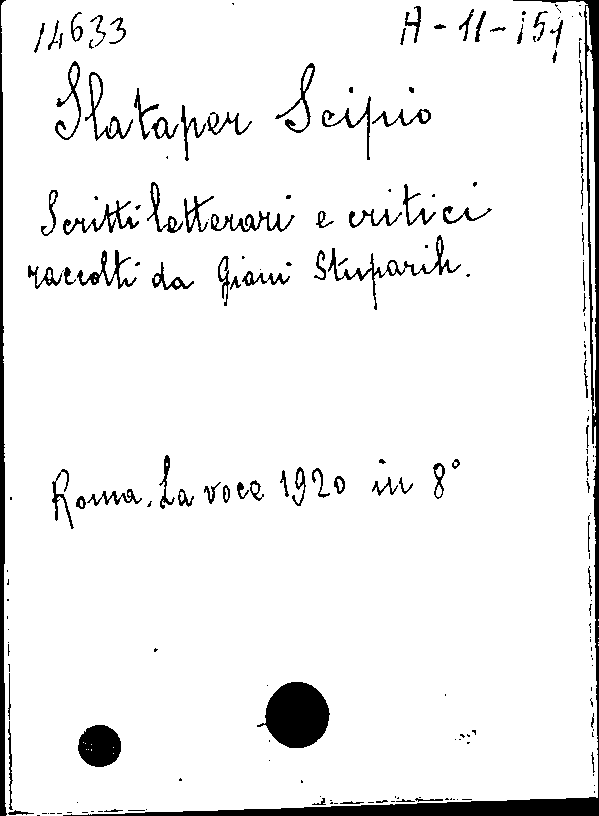 14633 A-11-151
Slataper Scipio
Scritti letterari e critici
raccolti da Giani Stuparih.
Roma. La voce 1920 in 8°